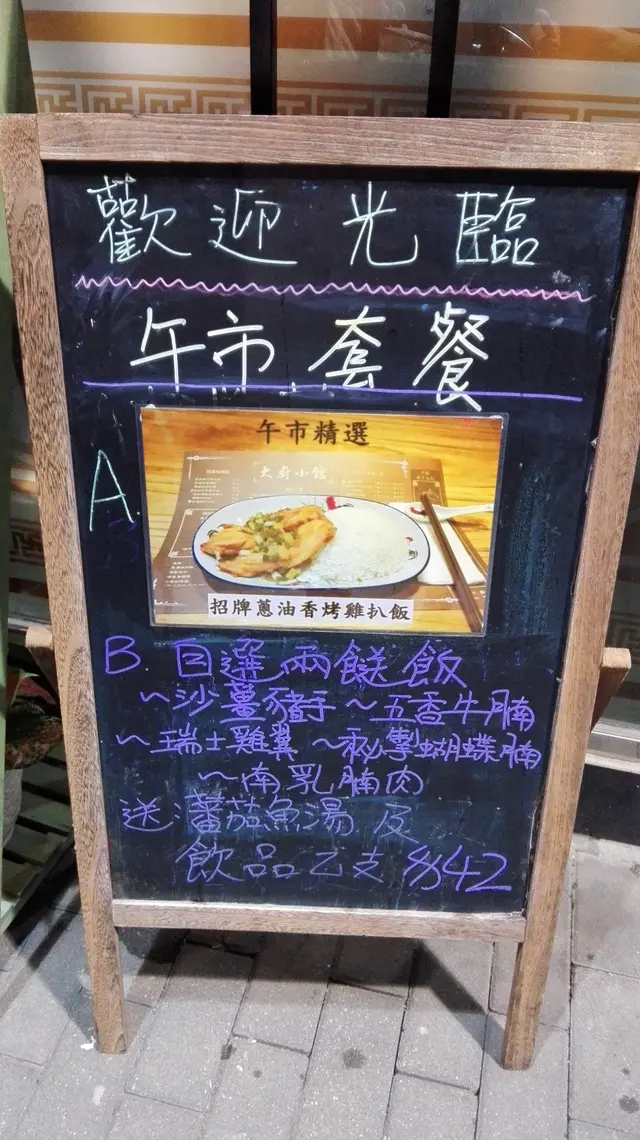 歡迎光臨
午市套餐
A
午市精選
大廚小館
招牌蔥油香烤雞扒飯
B. 自選兩餸飯
~沙薑豬手 ~五香牛腩
~瑞士雞翼 ~秘製蝴蝶腩
~南乳腩肉
送:蕃茄魚湯 及
飲品乙支 $42